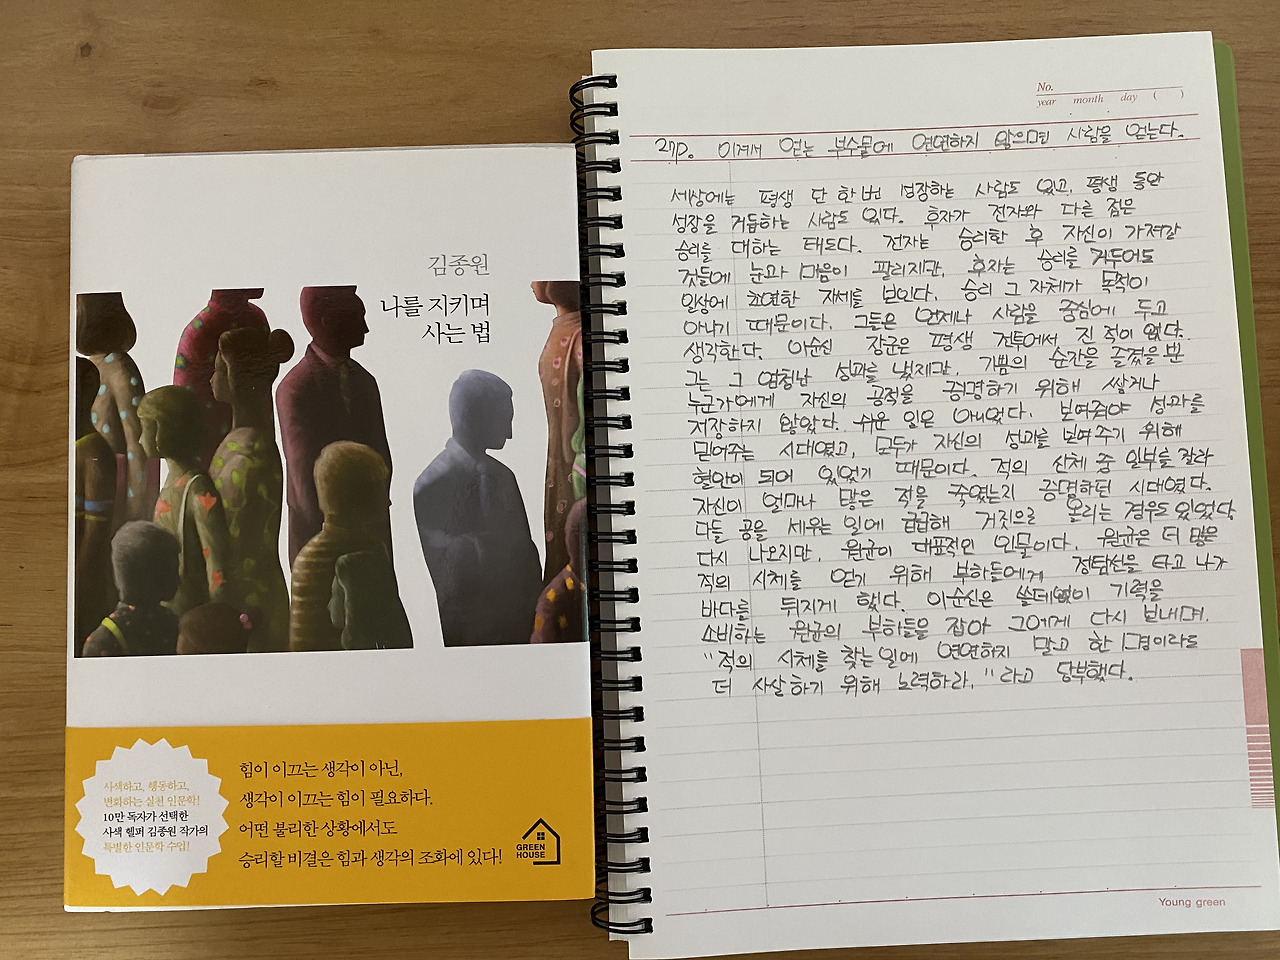 김종원
나를 지키며
사는 법
사색하고, 행동하고,
변화하는 실천 인문학!
10만 독자가 선택한
사색 헬퍼 김종원 작가의
특별한 인문학 수업!
힘이 이끄는 생각이 아닌,
생각이 이끄는 힘이 필요하다.
어떤 불리한 상황에서도
승리할 비결은 힘과 생각의 조화에 있다!
GREEN
HOUSE
No.
year month day ( )
27p. 이겨서 얻는 부수물에 연연하지 않으면 사람을 얻는다.
세상에는 평생 단 한 번 성장하는 사람도 있고, 평생 동안
성장을 거듭하는 사람도 있다. 후자가 전자와 다른 점은
승리를 대하는 태도다. 전자는 승리한 후 자신이 가져갈
것들에 눈과 마음이 팔리지만, 후자는 승리를 거두어도
일상에 초연한 자세를 보인다. 승리 그 자체가 목적이
아니기 때문이다. 그들은 언제나 사람을 중심에 두고
생각한다. 이순신 장군은 평생 전투에서 진 적이 없다.
그는 그 엄청난 성과를 냈지만, 기쁨의 순간을 즐겼을 뿐
누군가에게 자신의 공적을 증명하기 위해 쌓거나
저장하지 않았다. 쉬운 일은 아니었다. 보여줘야 성과를
믿어주는 시대였고, 모두가 자신의 성과를 보여주기 위해
혈안이 되어 있었기 때문이다. 적의 신체 중 일부를 잘라
자신이 얼마나 많은 적을 죽였는지 증명하던 시대였다.
다들 공을 세우는 일에 급급해 거짓으로 올리는 경우도 있었다
다시 나오지만, 원균이 대표적인 인물이다. 원균은 더 많은
적의 시체를 얻기 위해 부하들에게 정탐선을 타고 나가
바다를 뒤지게 했다. 이순신은 쓸데없이 기력을
소비하는 원균의 부하들을 잡아 그에게 다시 보내며,
"적의 시체를 찾는 일에 연연하지 말고 한 명이라도
더 사살하기 위해 노력하라."라고 당부했다.
Young green